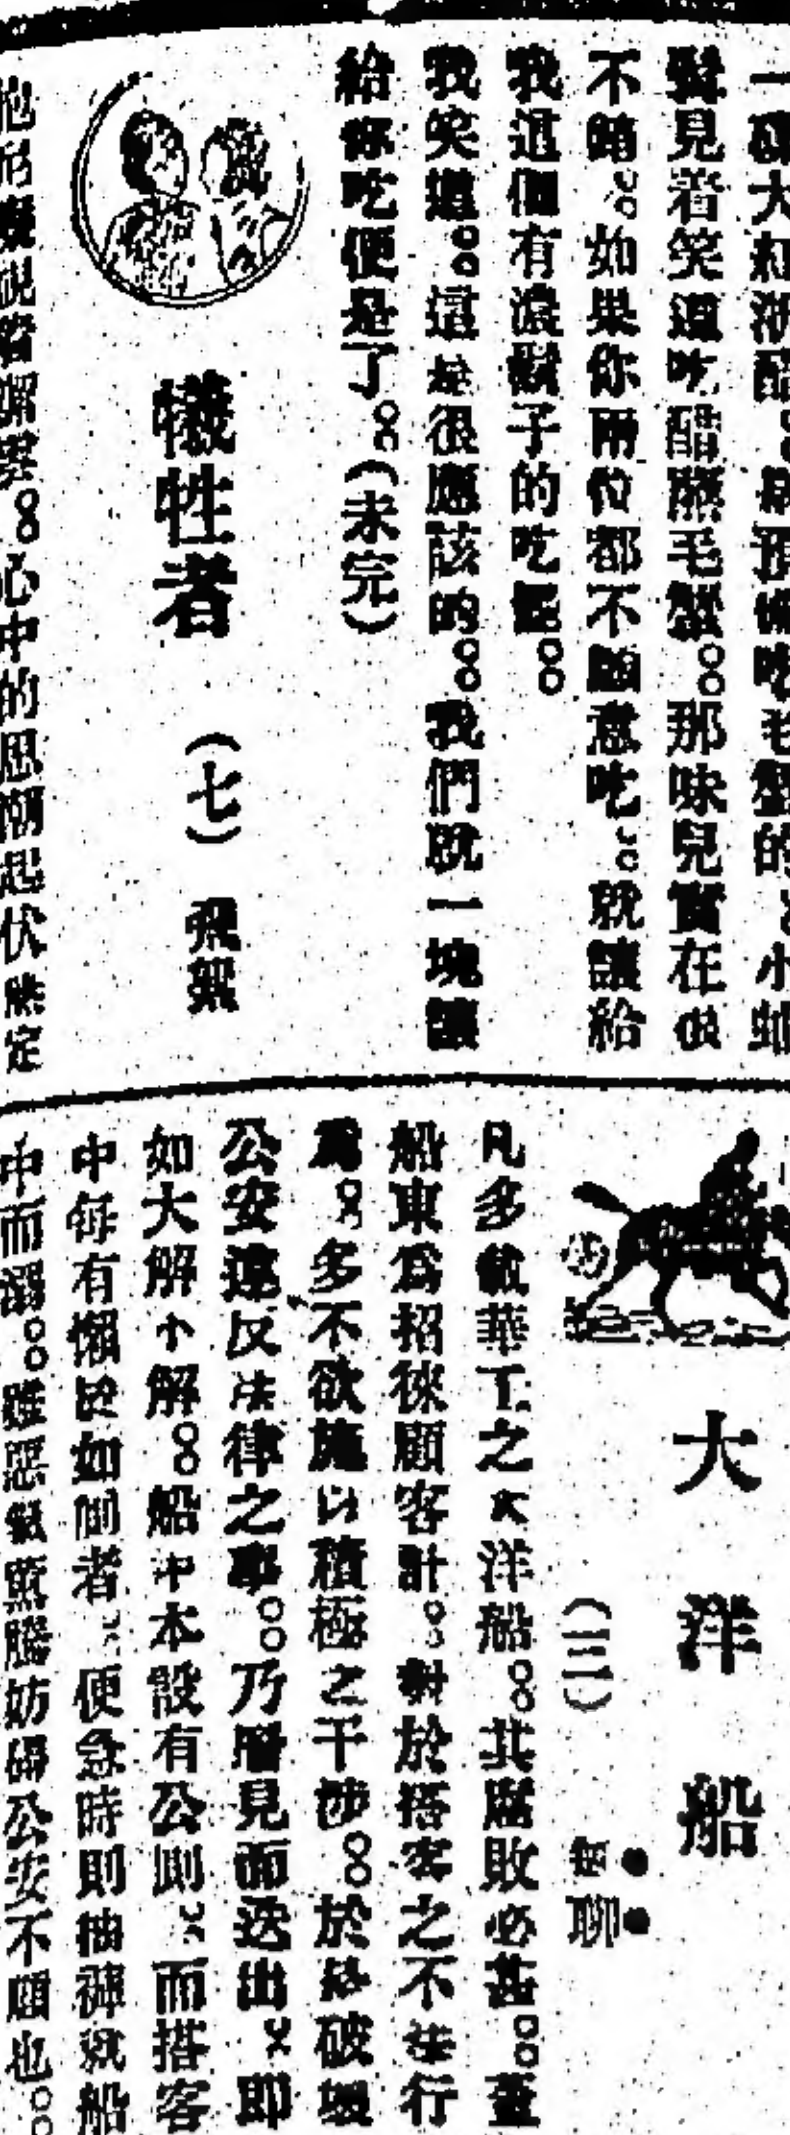 大紅浙醋。預備吃毛蟹的。小
見着笑道吃醋蘸毛蟹。那味兒實在也
不錯。如果你兩位都不願意吃。就讓給
我這個有濃鬍子的吃罷。
我笑道。這是很應該的。我們就一塊讓
給你吃便是了。(未完)
犧牲者 (七) 飛絮
心中的思潮起伏無定
大洋船
(三) 無聊
凡多載華工之大洋船。其腐敗必甚。蓋
船東爲招徠顧客計。對於搭客之不法行
爲。多不欲施以積極之干涉。於是破壞
公安違反法律之事。乃層見而迭出。即
如大解小解。船中本設有公厠。而搭客
中每有懶於如厠者。便急時則抽褲就船
中而溺。雖惡氣熏騰妨碍公安不顧也。